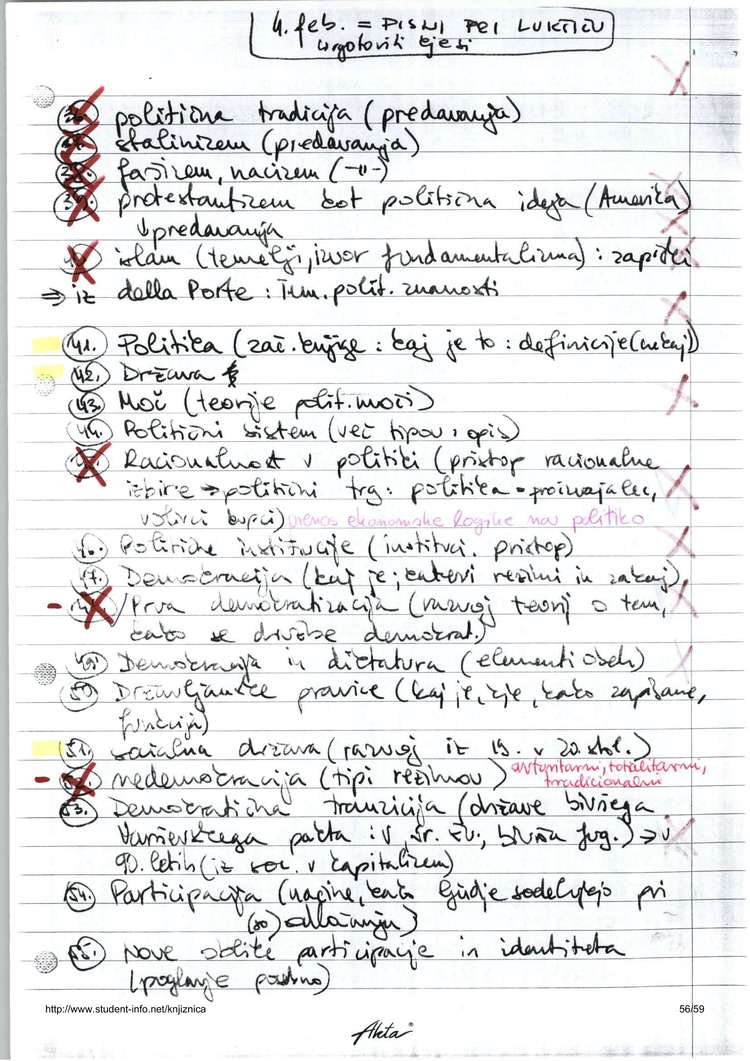 4. feb. = PISNI PRI LUKŠIČU
ugotoviti kje si
36. politična tradicija (predavanja)
37. stalinizem (predavanja)
38. fašizem, nacizem (-11-)
39. protestantizem kot politična ideja (Amerika)
↓ predavanja
40. islam (temelji, izvor fundamentalizma) : zapiski
⇒ iz della Porte : Tem. polit. znanosti
41. Politika (zač. knjige : kaj je to : definicije (nekaj))
42. Država
43. Moč (teorije polit. moči)
44. Politični sistem (več tipov, opis)
45. Racionalnost v politiki (pristop racionalne
izbire → politični trg : politika = proizvajalec,
volivci kupci) vnenos ekonomske logike na politiko
46. Politične institucije (instituc. pristop)
47. Demokracija (kaj je; kateri režimi in zakaj)
- 48. Prva demokratizacija (razvoj teorij o tem,
kako se družbe demokrat.)
49. Demokracija in diktatura (elementi obeh)
50. Državljanske pravice (kaj je, kje, kako zapisane,
funkcija)
51. socialna država (razvoj iz 19. v 20. stol.)
- 52. nedemokracija (tipi režimov) avtoritarni, totalitarni,
tradicionalni
53. Demokratična tranzicija (države bivšega
Varševskega pakta : V sr. Ev., bivša Jug.) ⇒ v
90. letih (iz soc. v kapitalizem)
54. Participacija (načine, kako ljudje sodelujejo pri
(so)odločanju)
55. Nove oblike participacije in identiteta
(poglavje posebno)
http://www.student-info.net/knjiznica
56/59
Akta